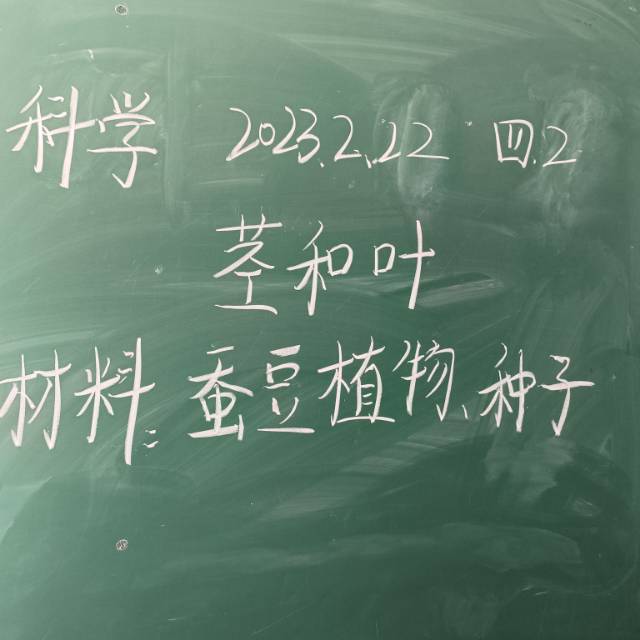 科学 2023.2.22 四.2
茎和叶
材料:蚕豆植物、种子